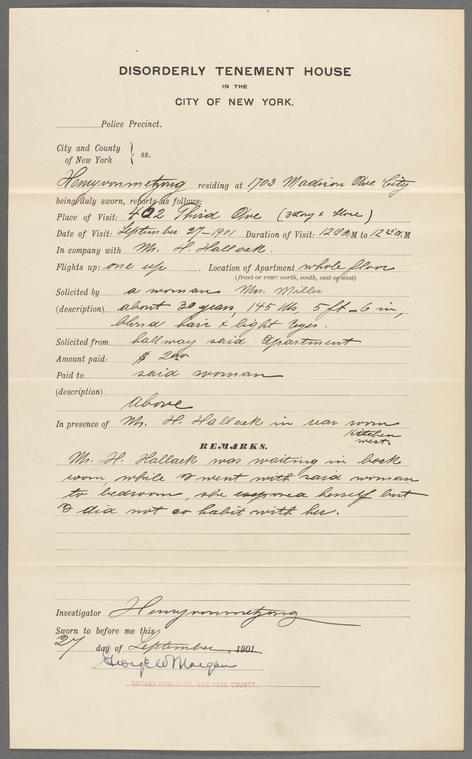 DISORDERLY TENEMENT HOUSE
IN THE
CITY OF NEW YORK.
Police Precinct.
City and County
of New York } ss.
Henry von metzong residing at 1703 Madison Ave City
being duly sworn, reports as follows:
Place of Visit: 422 Third Ave (3 story & store)
Date of Visit: September 27-1901 Duration of Visit: M to M
In company with Mr. H. Hallack.
Flights up: one up. Location of Apartment whole floor
(front or rear: north, south, east or west)
Solicited by a woman Mrs. Miller
(description) about 30 years, 145 lbs, 5 ft-6 in,
blond hair & light Eyes.
Solicited from hallway said Apartment
Amount paid: $ 2.00
Paid to said woman
(description)
above
In presence of Mr. H. Hallack in rear room
Kitchen
west.
REMARKS.
Mr. H. Hallack was waiting in back
room, while I went with said woman
to bedroom, she exposed herself but
I did not co habit with her.
Investigator Henry von metzong
Sworn to before me this
27 day of September 1901.
George W Morgan
NOTARY PUBLIC NEW YORK COUNTY.